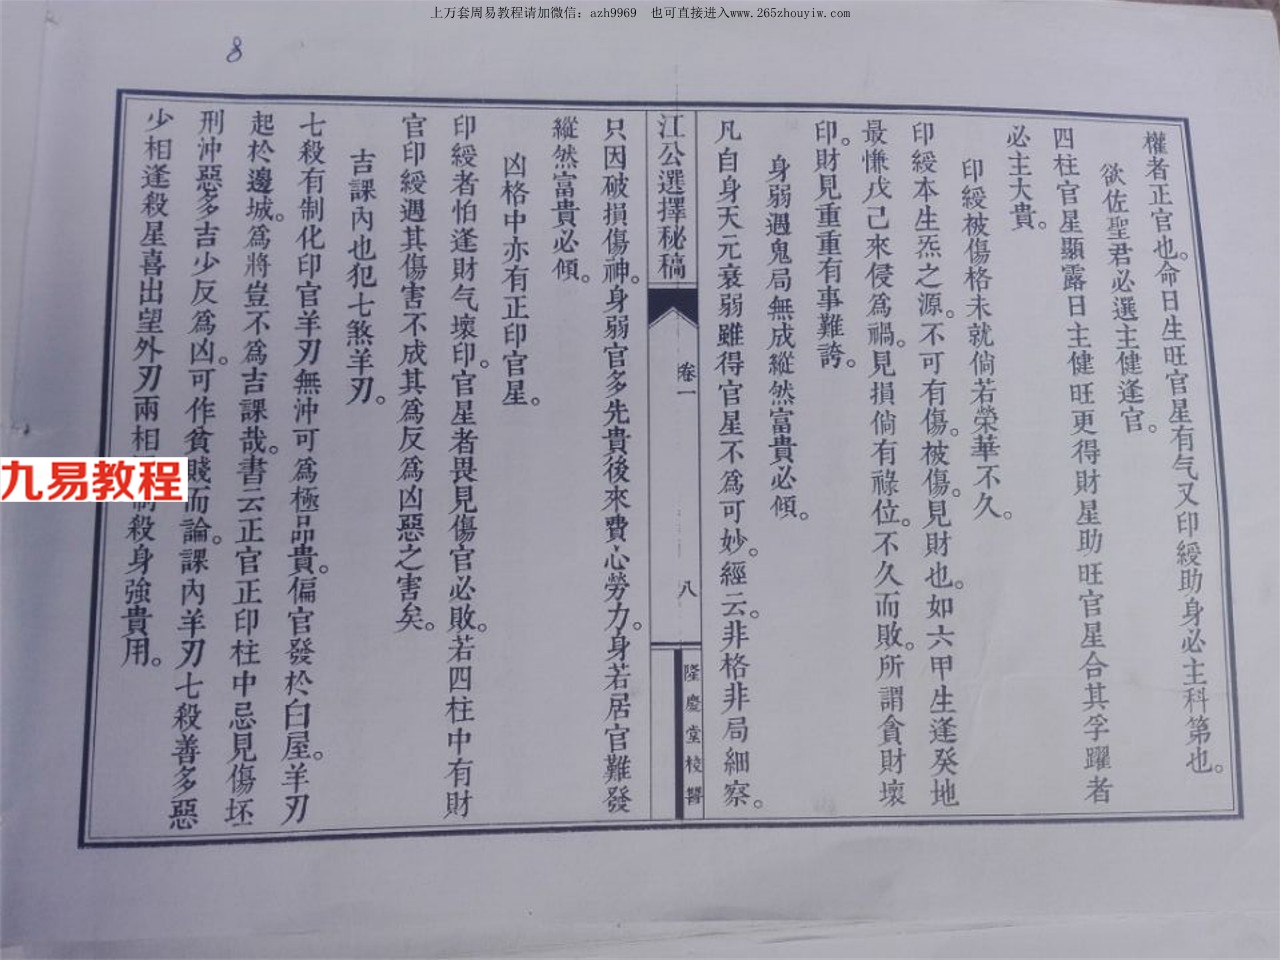 上万套周易教程请加微信：azh9969 也可直接进入www.265zhouyiw.com
8
權者正官也。命日生旺官星有气又印綬助身必主科第也。
欲佐聖君必選主健逢官。
四柱官星顯露日主健旺更得財星助旺官星合其孚躍者
必主大貴。
印綬被傷格未就倘若榮華不久。
印綬本生炁之源。不可有傷。被傷。見財也。如六甲生逢癸地
最慊戊己來侵為禍。見損倘有祿位。不久而敗。所謂貪財壞
印。財見重重有事難誇。
身弱遇鬼局無成縱然富貴必傾。
凡自身天元衰弱雖得官星不為可妙。經云。非格非局細察。
江公選擇秘稿
卷一
八
隆慶堂校讐
只因破損傷神。身弱官多先貴後來費心勞力。身若居官難發
縱然富貴必傾。
凶格中亦有正印官星。
印綬者怕逢財气壞印。官星者畏見傷官必敗。若四柱中有財
官印綬遇其傷害不成其為反為凶惡之害矣。
吉課內也犯七煞羊刃。
七殺有制化印官羊刃無沖可為極品貴。偏官發於白屋。羊刃
起於邊城。為將豈不為吉課哉。書云正官正印柱中忌見傷坯
刑沖惡多吉少反為凶。可作貧賤而論。課內羊刃七殺善多惡
少相逢殺星喜出望外刃兩相制殺身強貴用。
九易教程